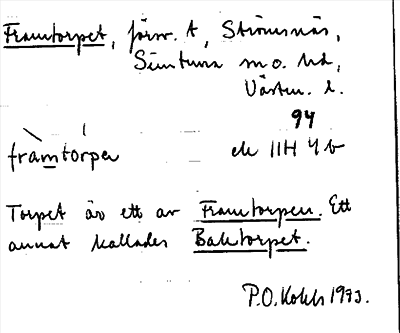 Framtorpet, försv. t, Strömsnäs,
Simtuna sn o. hd,
Västm. l.
94
framtorpen ek 11H 4b
Torpet är ett av Framtorpen. Ett
annat kallades Baktorpet.
P.O. Kohls 1973.